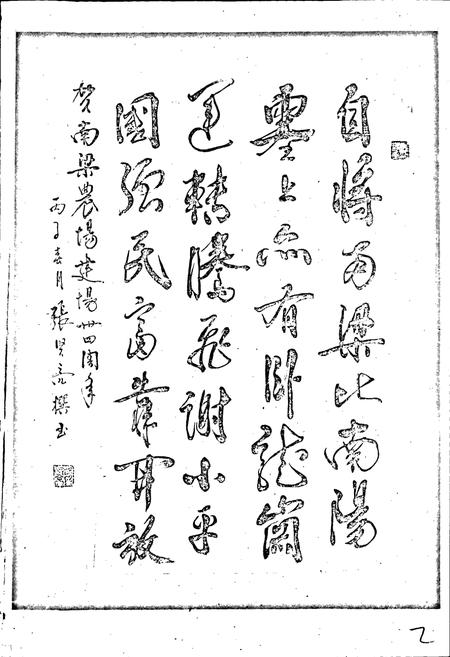 自將南梁比南陽
塞上亦有卧龍崗
運轉騰飛謝小平
國强民富靠開放
賀南梁農場建場卌四周年
丙子春月 張賢亮撰書
2